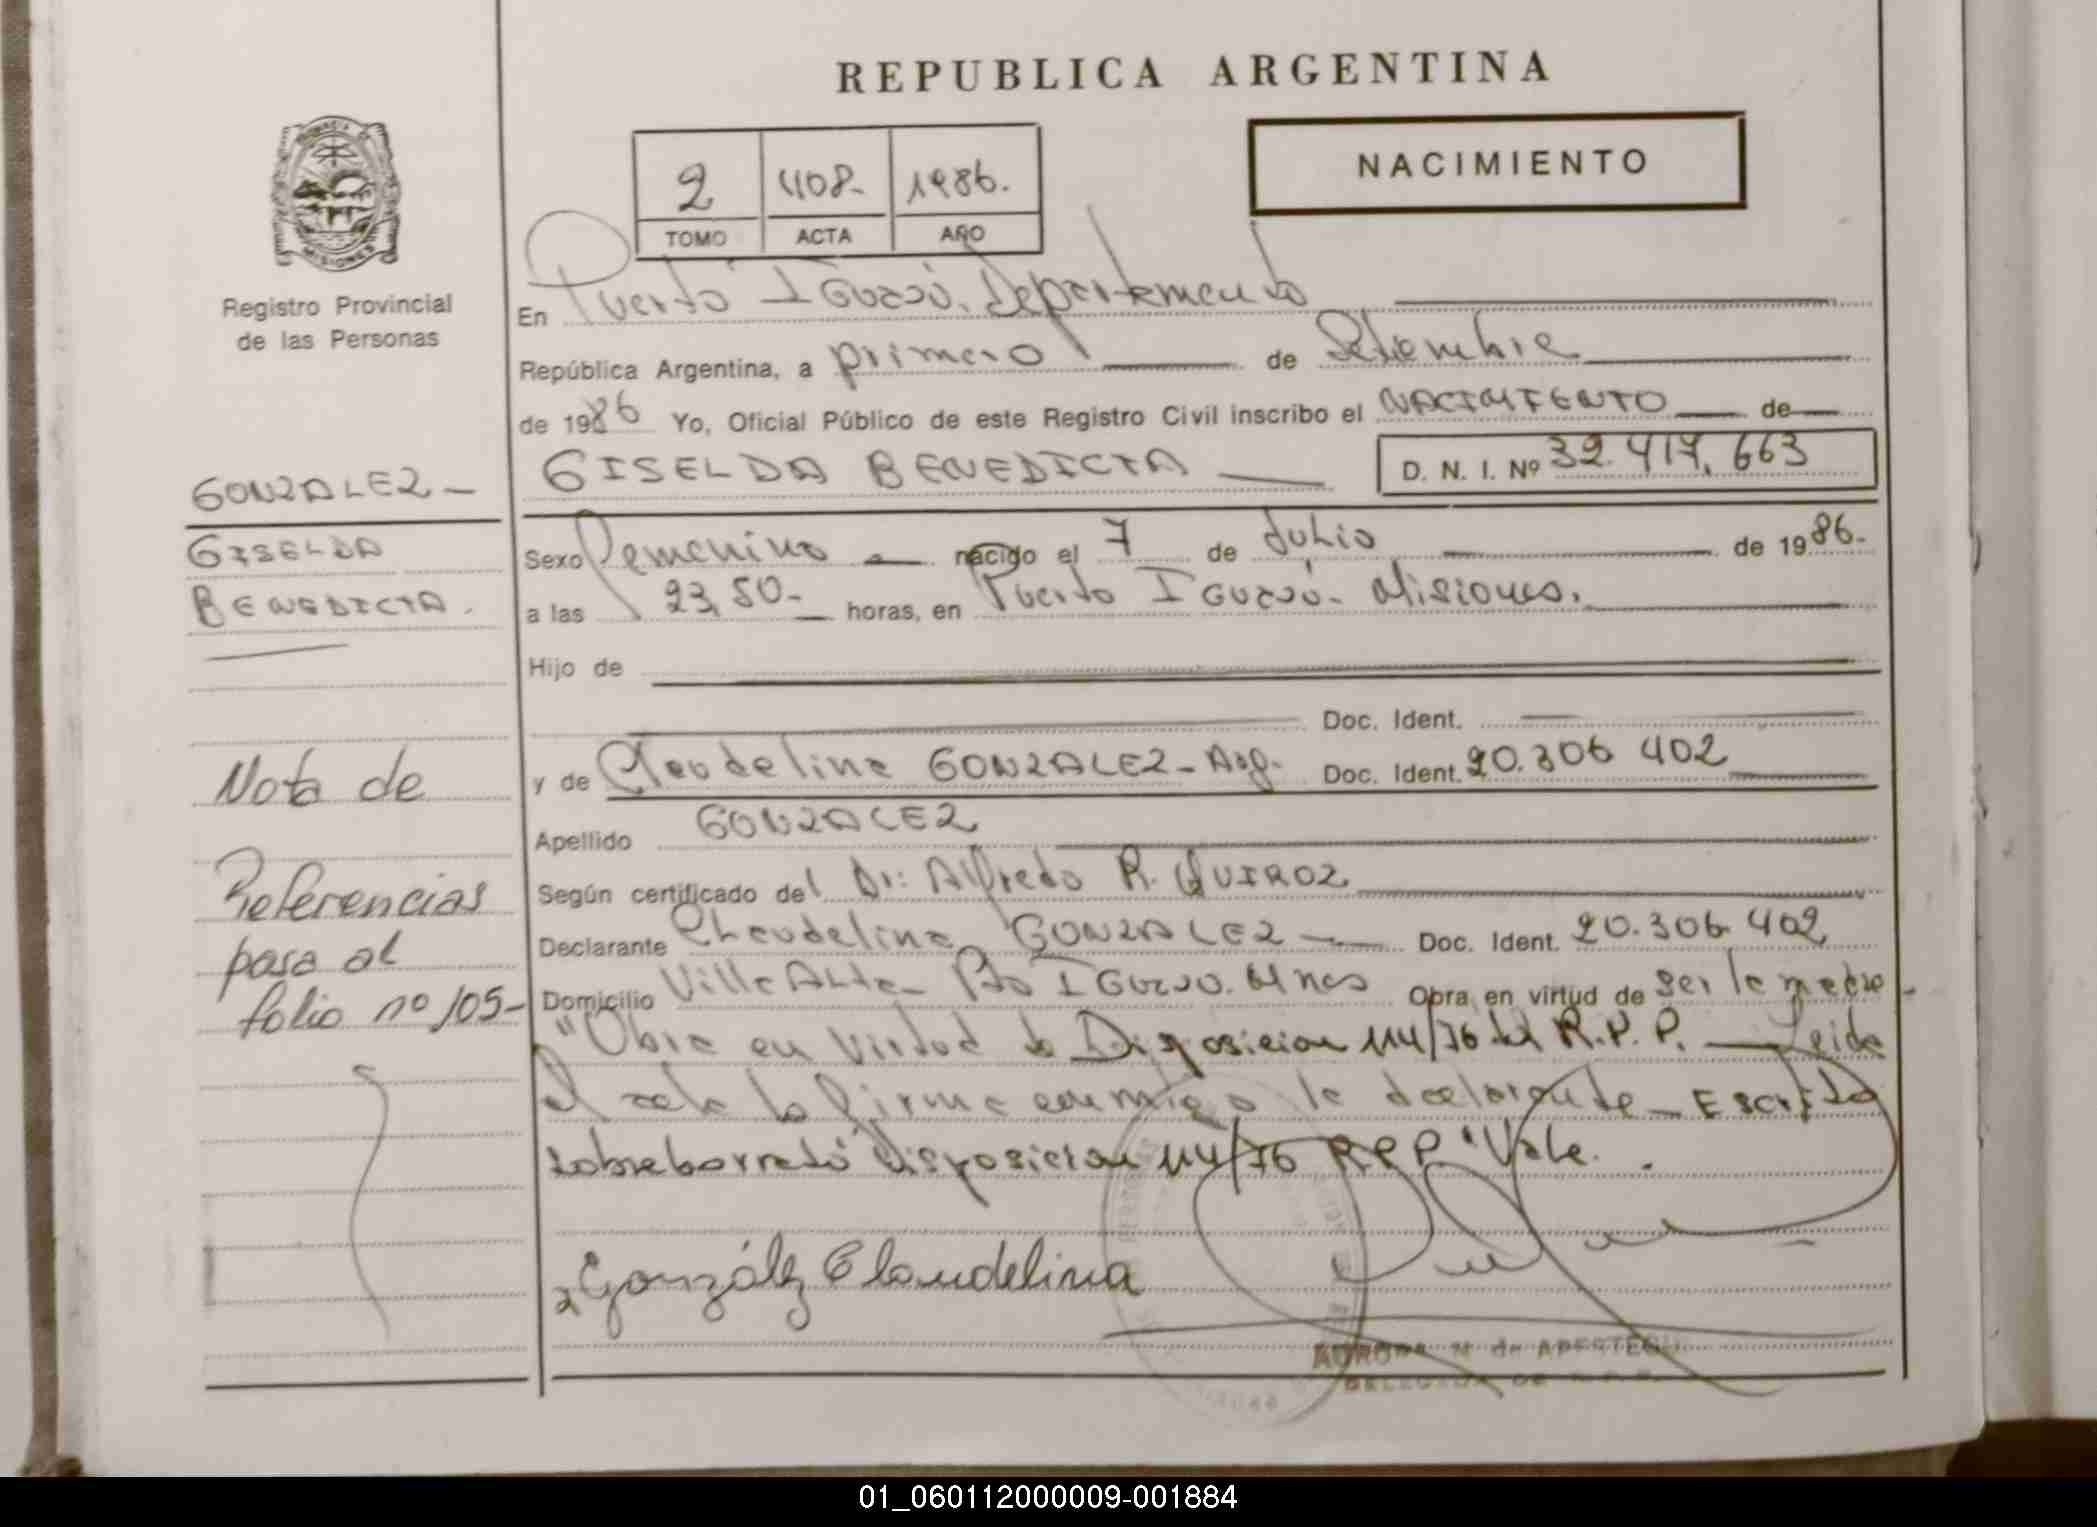 REPUBLICA ARGENTINA
NACIMIENTO
2 408- 1986.
TOMO ACTA AÑO
PROVINCIA DE
MISIONES
Registro Provincial
de las Personas
En Puerto Iguazú, Departamento
República Argentina, a primero de Setiembre
de 1986 Yo, Oficial Público de este Registro Civil inscribo el NACIMIENTO de
GISELDA BENEDICTA D. N. I. Nº 32.417.663
GONZALEZ -
GISELDA
BENEDICTA.
Sexo Femenino nacido el 7 de Julio de 1986-
a las 23,50- horas, en Puerto Iguazú- Misiones.
Hijo de
Doc. Ident.
y de Claudelina GONZALEZ - Arg. Doc. Ident. 20.306 402
Apellido GONZALEZ
Según certificado del Dr: Alfredo R. QUIROZ
Declarante Claudelina GONZALEZ Doc. Ident. 20.306.402
Domicilio Villa Alta- Pto Iguazú. Mnes Obra en virtud de ser la madre-
"Obra en virtud de Disposicion 114/76 del R.P.P. Leida
el acta la firma conmigo la declarante - Escrito
sobreborrado "disposicion 114/76 R.P.P" Vale.
Nota de
Referencias
pasa al
folio nº 105-
González Claudelina
AURORA M de APESTEGUI
DELEGADA DE R.P.P.
01_060112000009-001884